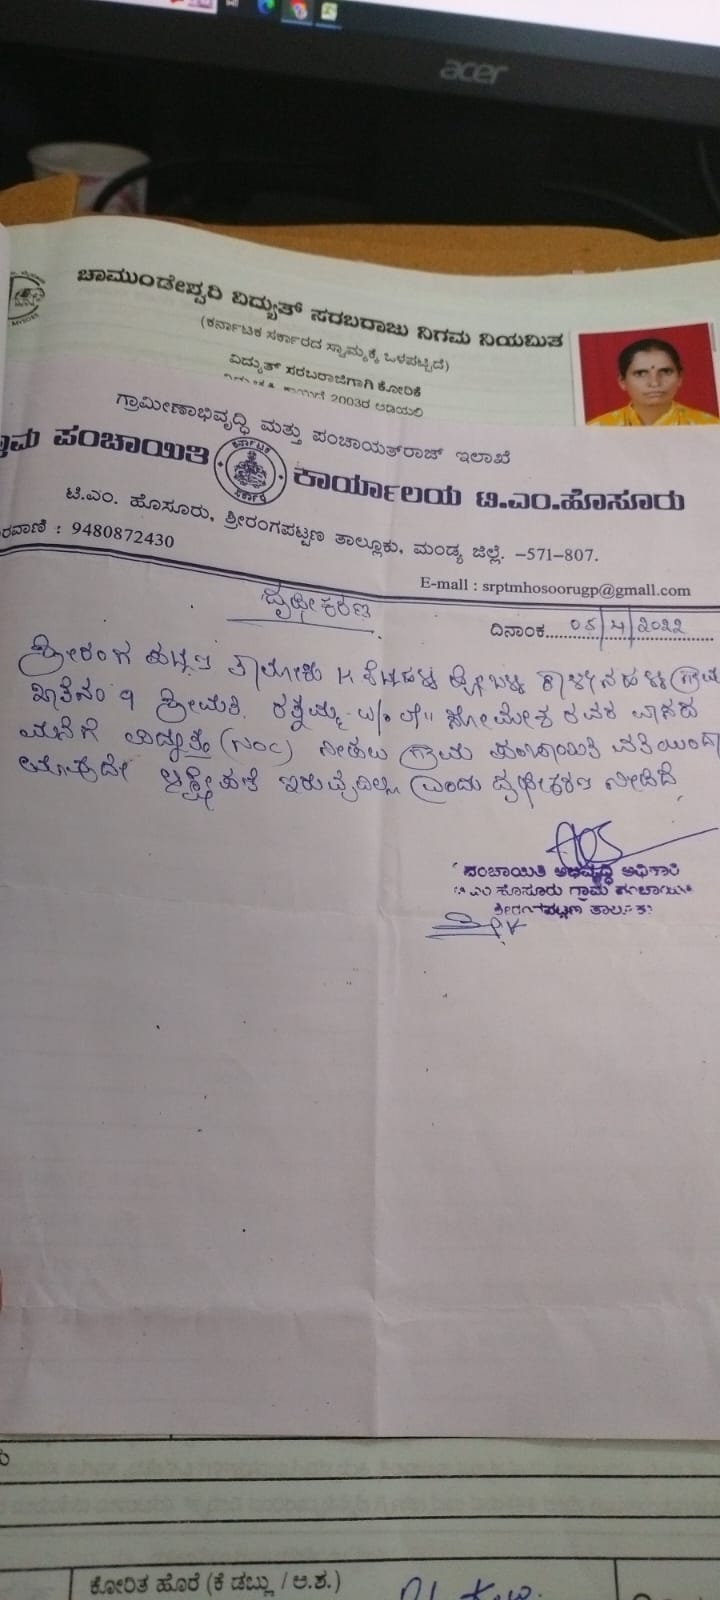 acer
ಚಾಮುಂಡೇಶ್ವರಿ ವಿದ್ಯುತ್ ಸರಬರಾಜು ನಿಗಮ ನಿಯಮಿತ
(ಕರ್ನಾಟಕ ಸರ್ಕಾರದ ಸ್ವಾಮ್ಯಕ್ಕೆ ಒಳಪಟ್ಟಿದೆ)
ವಿದ್ಯುತ್ ಸರಬರಾಜಿಗಾಗಿ ಕೋರಿಕೆ
2003ರ ಅಡಿಯಲಿ
ಗ್ರಾಮೀಣಾಭಿವೃದ್ಧಿ ಮತ್ತು ಪಂಚಾಯತ್‌ರಾಜ್ ಇಲಾಖೆ
ಪಂಚಾಯಿತಿ ಕರ್ನಾಟಕ ಸರ್ಕಾರ ಕಾರ್ಯಾಲಯ ಟಿ.ಎಂ.ಹೊಸೂರು
ಟಿ.ಎಂ. ಹೊಸೂರು, ಶ್ರೀರಂಗಪಟ್ಟಣ ತಾಲ್ಲೂಕು, ಮಂಡ್ಯ ಜಿಲ್ಲೆ. –571–807.
ರವಾಣಿ : 9480872430
E-mall : srptmhosoorugp@gmall.com
ದೃಢೀಕರಣ
ದಿನಾಂಕ 05/4/2022
ಶ್ರೀರಂಗ ಪಟ್ಟಣ ತಾಲೋಕು K ಶೆಟ್ಟಹಳ್ಳಿ ಗ್ರಾಮ
ಖಾತೆನಂ 9 ಶ್ರೀಮತಿ. ರತ್ನಮ್ಮ w/o ಲೇ|| ಸೋಮೇಶ ರವರ ವಾಸದ
ಮನೆಗೆ ವಿದ್ಯುತ್ (NOC) ನೀಡಲು ಗ್ರಾಮ ಪಂಚಾಯಿತಿ ವತಿಯಿಂದ
ಯಾವುದೇ ಇರುವುದಿಲ್ಲ ಎಂದು ದೃಢೀಕರಣ ನೀಡಿದೆ
ಪಂಚಾಯಿತಿ ಅಭಿವೃದ್ಧಿ ಅಧಿಕಾರಿ
ಟಿ ಎಂ ಹೊಸೂರು ಗ್ರಾಮ ಪಂಚಾಯಿತಿ
ಶ್ರೀರಂಗಪಟ್ಟಣ ತಾಲ್ಲೂಕು
ಕೋರಿತ ಹೊರೆ (ಕೆ ಡಬ್ಲ್ಯು / ಅ.ಶ.)